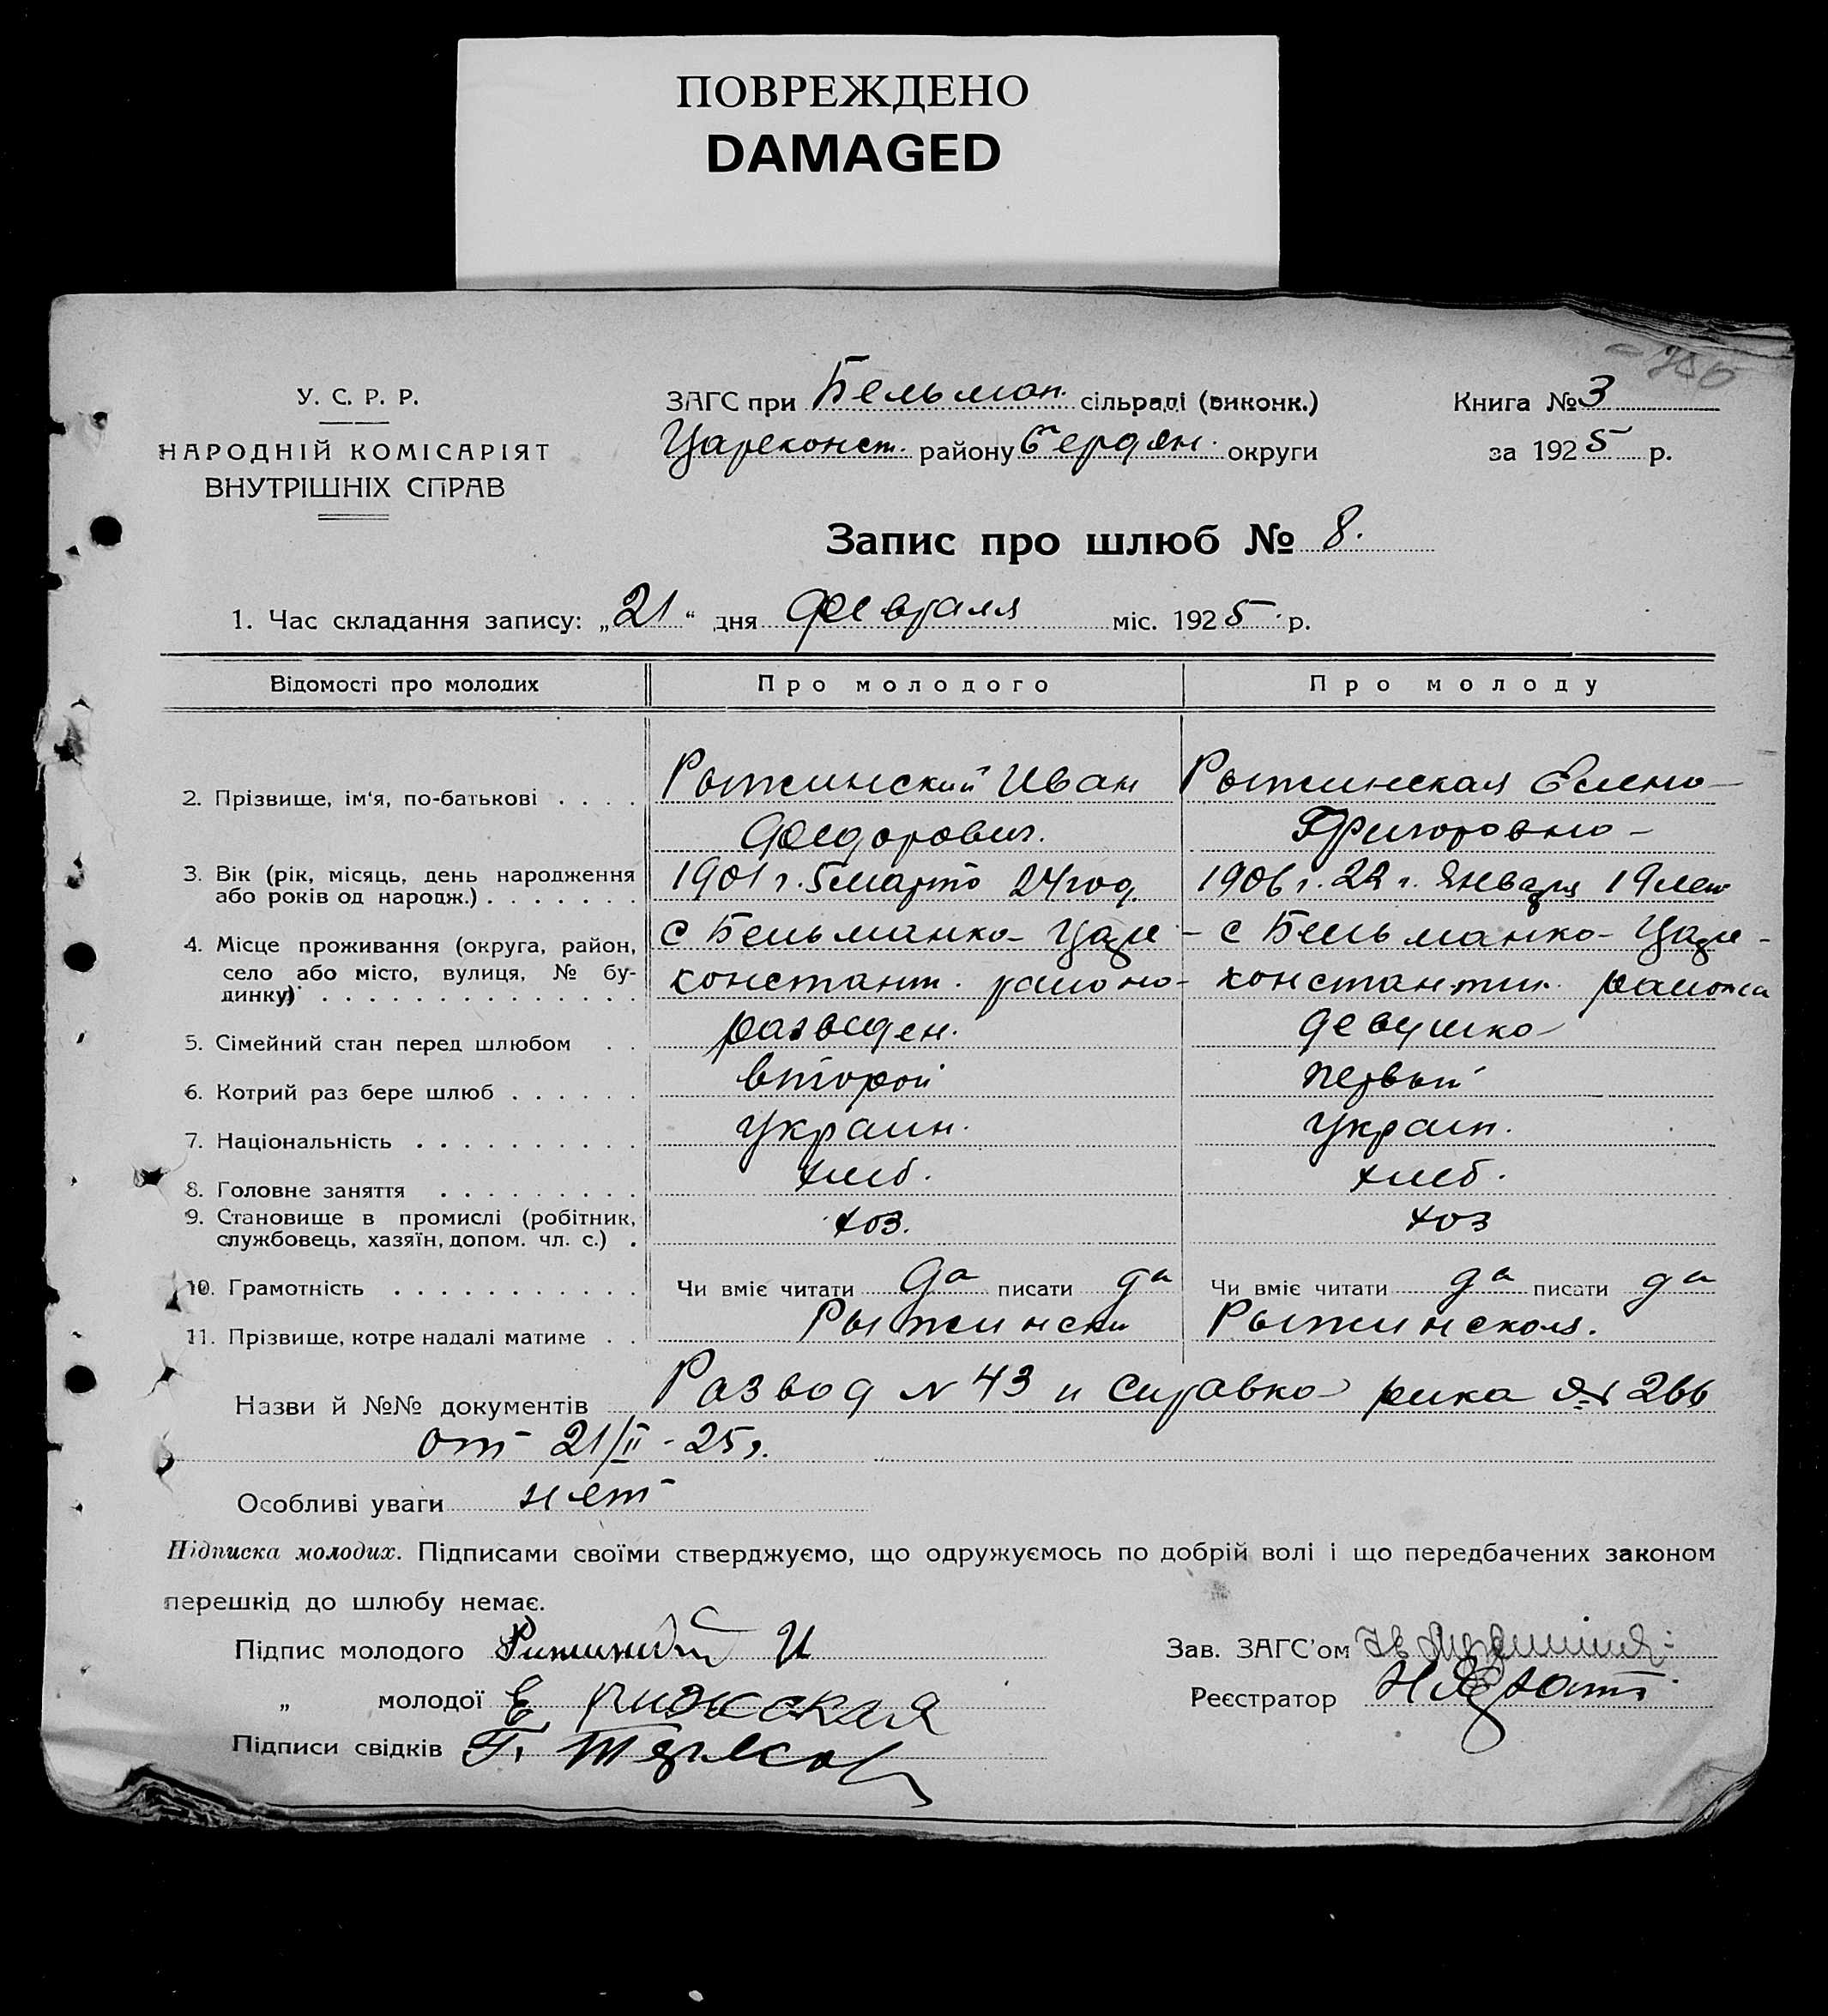 ПОВРЕЖДЕНО
DAMAGED
У. С. Р. Р.
НАРОДНІЙ КОМІСАРІЯТ
ВНУТРІШНІХ СПРАВ
ЗАГС при Бельман. сільраді (виконк.)
Цареконст. району Бердян. округи
Книга № 3
за 1925 р.
Запис про шлюб № 8.
1. Час складання запису: „21“ дня февраля міс. 1925 р.
Відомості про молодих Про молодого Про молоду
2. Прізвище, ім‘я, по-батькові . . . . Рыжинский Иван Рыжинская Елена
Федорович. Григоровна
3. Вік (рік, місяць, день народження 1901 г. 5 марта 24 год. 1906 г. 22 г. Января 19 лет
або років од народж.) . . . . . . .
4. Місце проживання (округа, район, с Бельманка- Царе- с Бельманка- Царе-
село або місто, вулиця, № бу- констант. района- константин. района
динку) . . . . . . . . . . . . . .
5. Сімейний стан перед шлюбом . . разведен. девушка
6. Котрий раз бере шлюб . . . . . . второй первый
7. Національність . . . . . . . . . . украин. украин.
8. Головне заняття . . . . . . . . . хлеб. хлеб.
9. Становище в промислі (робітник, хоз. хоз
службовець, хазяїн, допом. чл. с.) .
10. Грамотність . . . . . . . . . . . Чи вміє читати да писати да Чи вміє читати да писати да
11. Прізвище, котре надалі матиме . . Рыжински Рыжинская.
Назви й №№ документів Развод N 43 и справка рика № 266
от 21/II - 25 г.
Особливі уваги нет
Підписка молодих. Підписами своїми стверджуємо, що одружуємось по добрій волі і що передбачених законом
перешкід до шлюбу немає.
Підпис молодого И
Зав. ЗАГС'ом
„ молодої Е
Реєстратор
Підписи свідків Г.